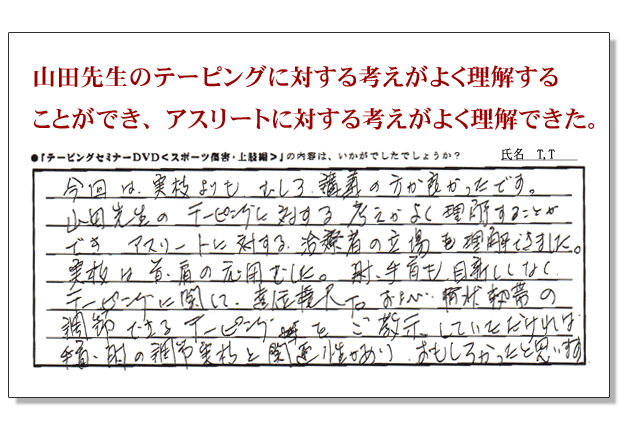 山田先生のテーピングに対する考えがよく理解する
ことができ、アスリートに対する考えがよく理解できた。
●「テーピングセミナーDVD<スポーツ傷害・上肢編>」の内容は、いかがでしたでしょうか？ 氏名 T.T
今回は、実技よりも むしろ、講義の方が良かったです。
山田先生の テーピングに対する 考えがよく理解することが
でき アスリートに対する、治療者の立場も理解できました。
実技は首、肩の応用でした。肘、手首も目新しくなく
テーピングに関して、 および、 靭帯の
調節できるテーピング を ご教示していただければ
手首、肘の調節実技と関連性があり、おもしろかったと思います